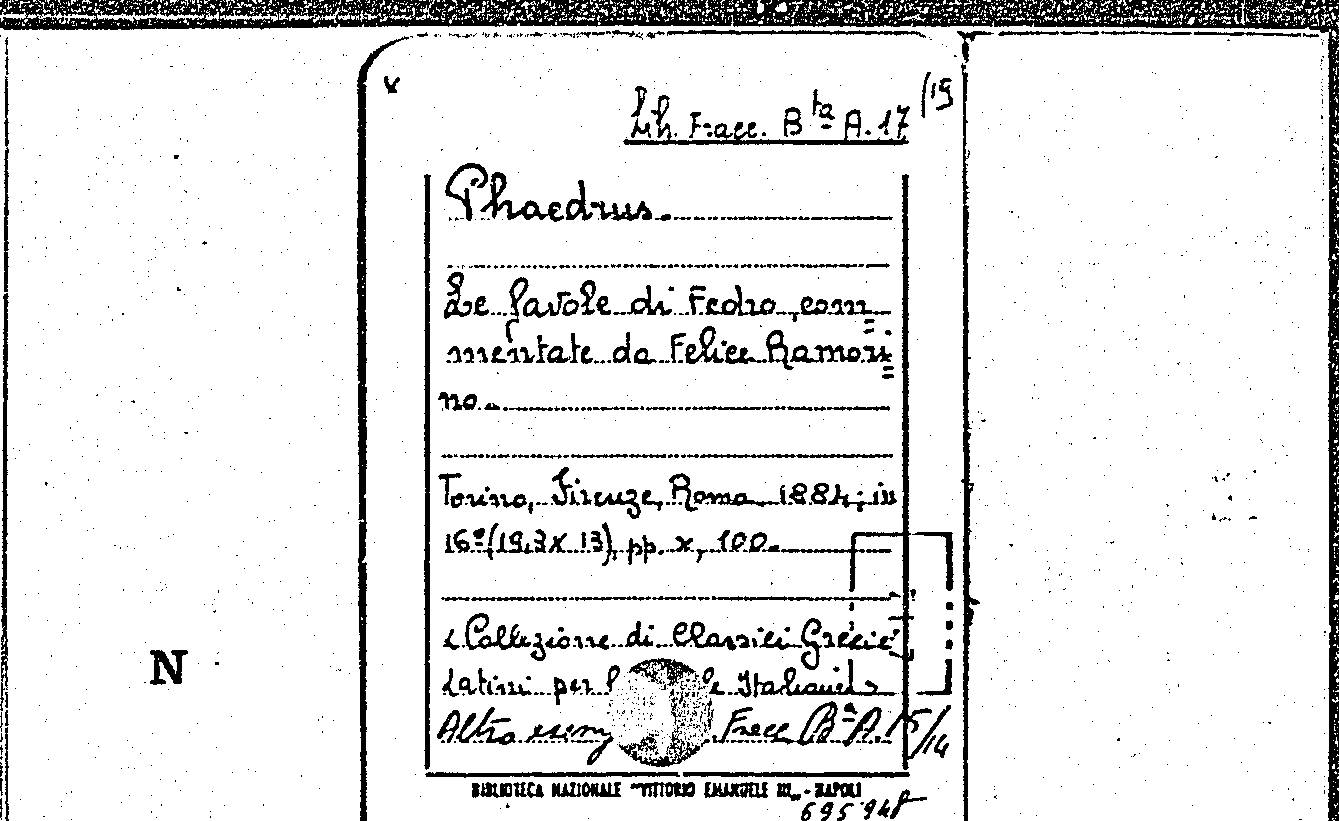 /19
Lh. Facc. B ta A. 17
Phaedrus.
Le favole di Fedro, com=
mentate da Felice Ramori=
no.
Torino, Firenze, Roma 1884; in
16º (19,3 X 13), pp. x, 100.
« Collezione di Classici Greci e
Latini per l e Italiane »
Altro esem Facc Bª A. 15/14
N
BIBLIOTECA NAZIONALE "VITTORIO EMANUELE III" - NAPOLI